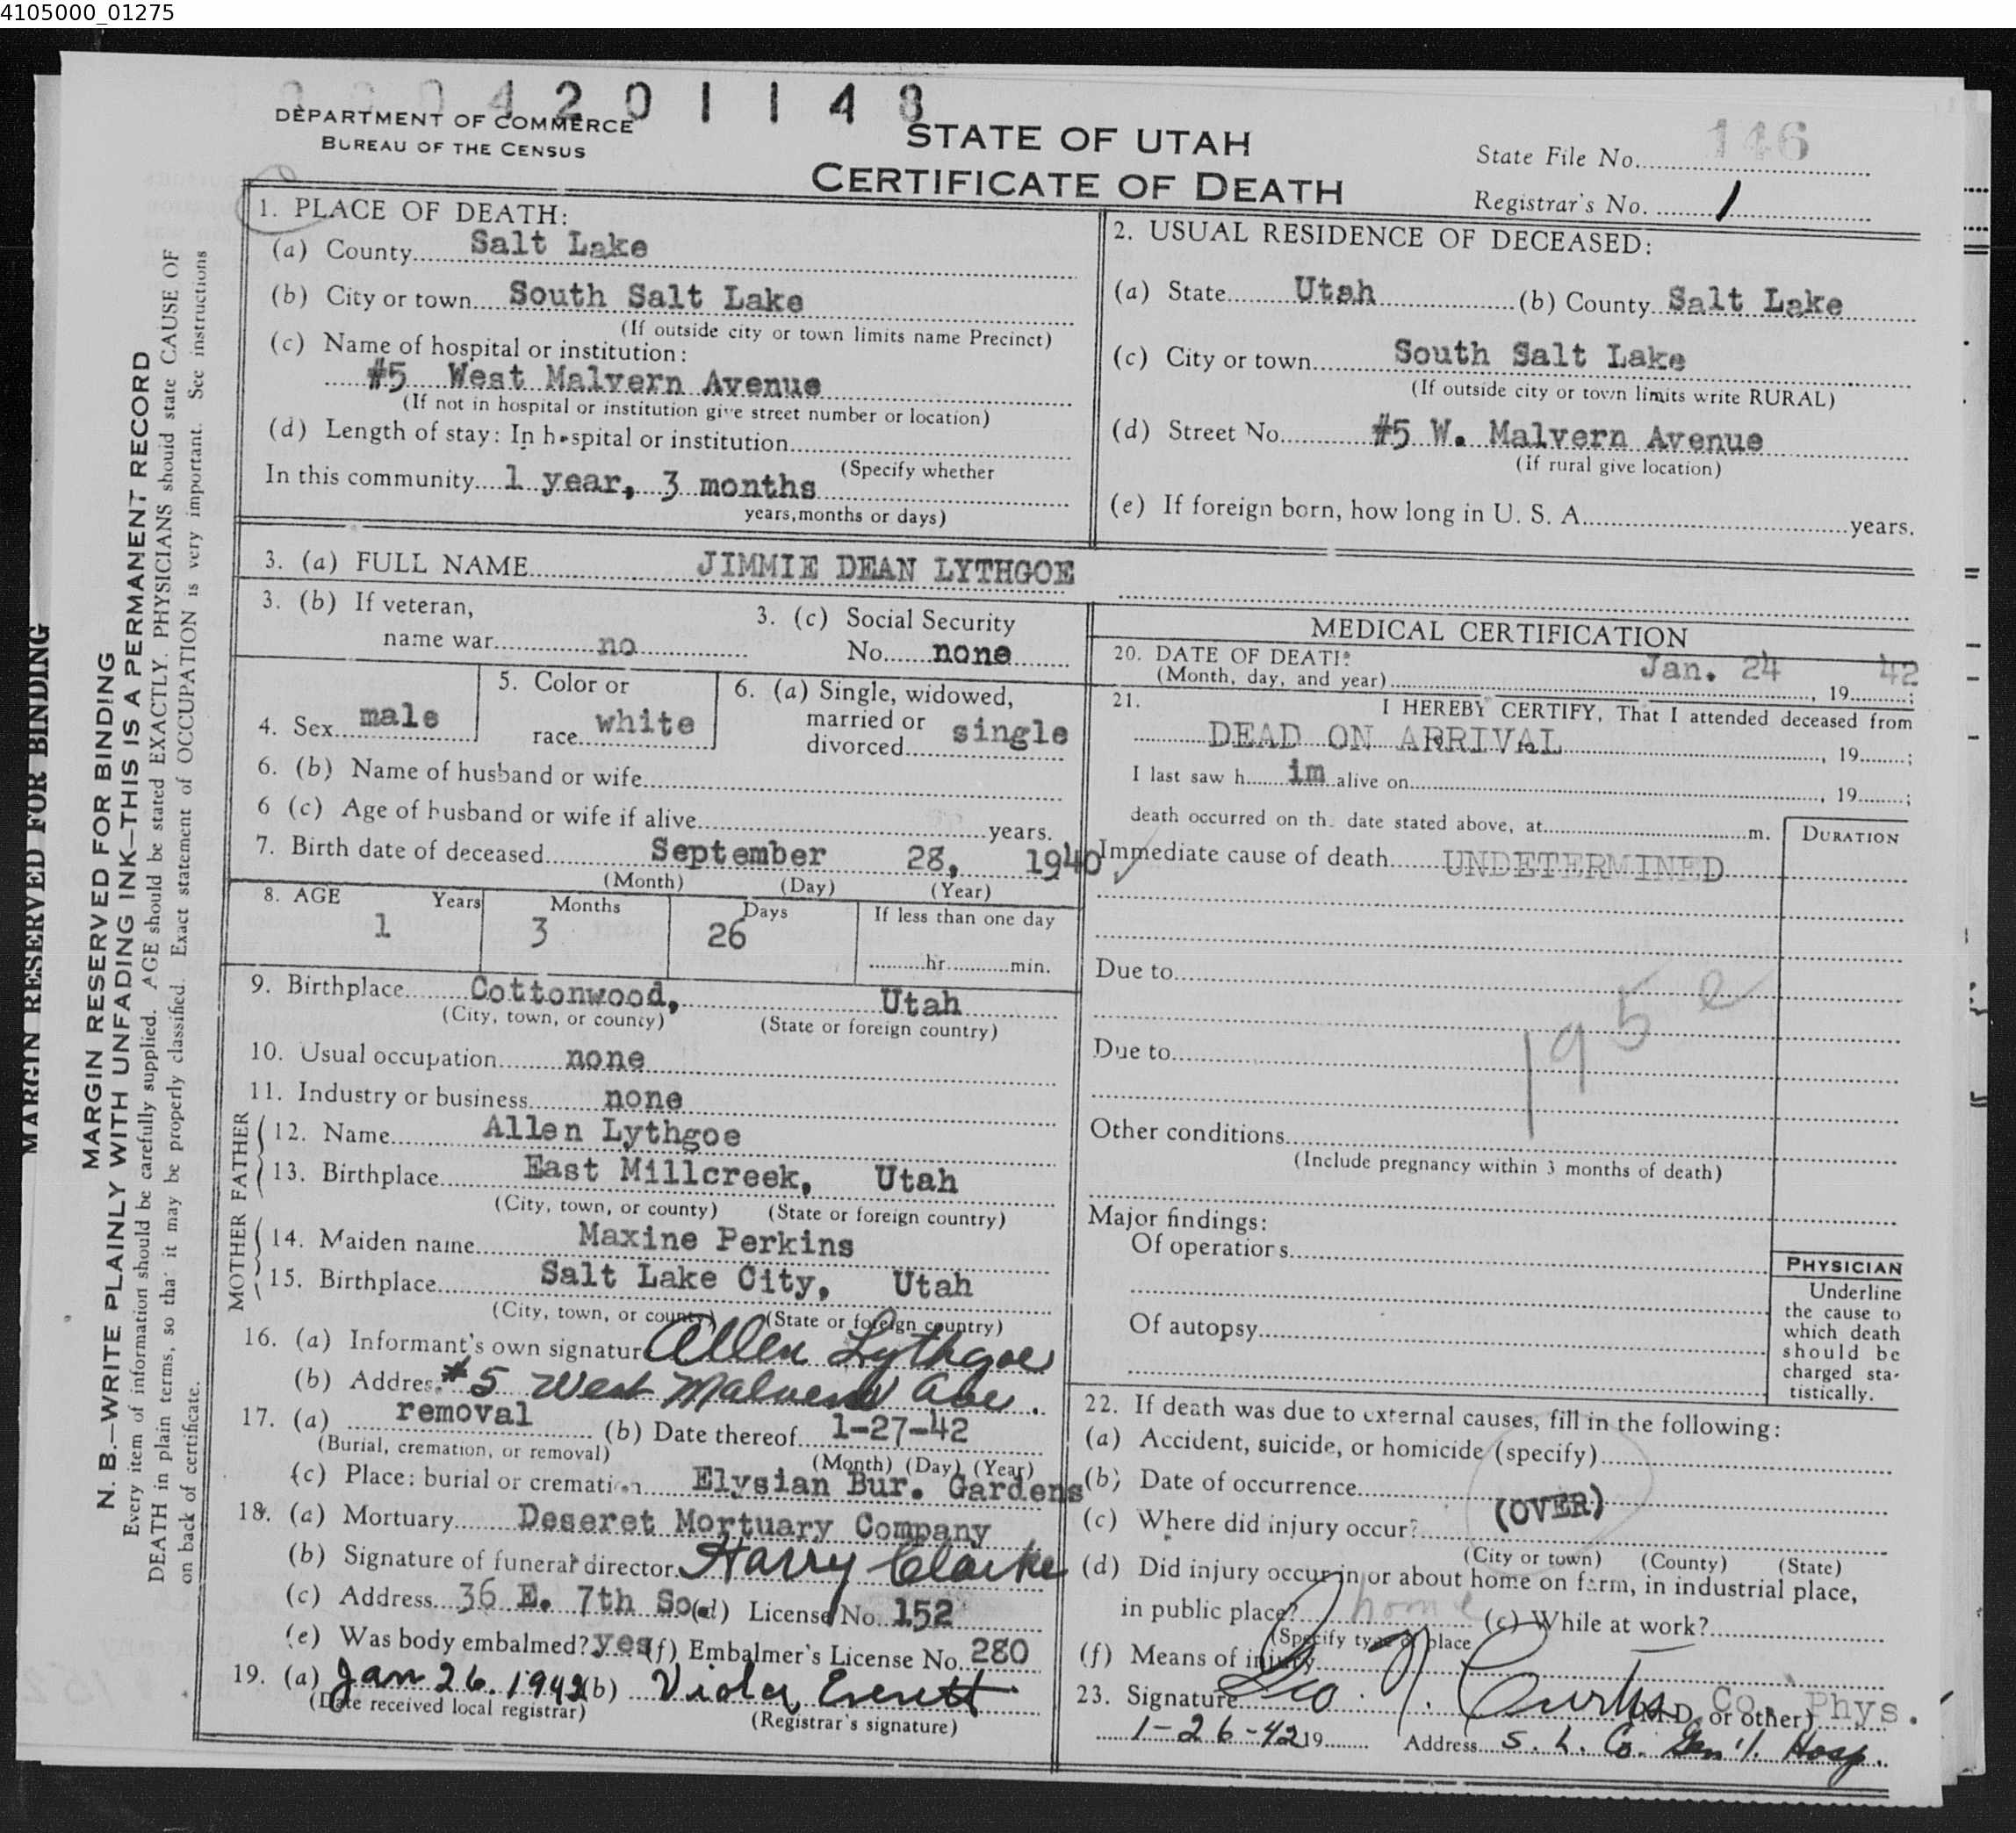 4105000_01275
4201148
DEPARTMENT OF COMMERCE
BUREAU OF THE CENSUS
STATE OF UTAH
CERTIFICATE OF DEATH
State File No. 146
Registrar's No. 1
1. PLACE OF DEATH:
(a) County Salt Lake
(b) City or town South Salt Lake
(If outside city or town limits name Precinct)
(c) Name of hospital or institution:
#5 West Malvern Avenue
(If not in hospital or institution give street number or location)
(d) Length of stay: In hospital or institution
(Specify whether
In this community 1 year, 3 months
years, months or days)
2. USUAL RESIDENCE OF DECEASED:
(a) State Utah (b) County Salt Lake
(c) City or town South Salt Lake
(If outside city or town limits write RURAL)
(d) Street No. #5 W. Malvern Avenue
(If rural give location)
(e) If foreign born, how long in U. S. A. years.
3. (a) FULL NAME JIMMIE DEAN LYTHGOE
3. (b) If veteran,
name war no
3. (c) Social Security
No. none
4. Sex male
5. Color or
race white
6. (a) Single, widowed,
married or
divorced single
6. (b) Name of husband or wife
6 (c) Age of husband or wife if alive years.
7. Birth date of deceased September 28, 1940
(Month) (Day) (Year)
8. AGE Years Months Days If less than one day
1 3 26
hr. min.
9. Birthplace Cottonwood, Utah
(City, town, or county) (State or foreign country)
10. Usual occupation none
11. Industry or business none
FATHER
12. Name Allen Lythgoe
13. Birthplace East Millcreek, Utah
(City, town, or county) (State or foreign country)
MOTHER
14. Maiden name Maxine Perkins
15. Birthplace Salt Lake City, Utah
(City, town, or county) (State or foreign country)
16. (a) Informant's own signature Allen Lythgoe
(b) Address #5 West Malvern Ave.
17. (a) removal (b) Date thereof 1-27-42
(Burial, cremation, or removal) (Month) (Day) (Year)
(c) Place: burial or cremation Elysian Bur. Gardens
18. (a) Mortuary Deseret Mortuary Company
(b) Signature of funeral director Harry Clarke
(c) Address 36 E. 7th So. (d) License No. 152
(e) Was body embalmed? yes (f) Embalmer's License No. 280
19. (a) Jan 26. 1942 (b) Violet Everett
(Date received local registrar) (Registrar's signature)
MEDICAL CERTIFICATION
20. DATE OF DEATH
(Month, day, and year) Jan. 24, 1942;
21. I HEREBY CERTIFY, That I attended deceased from
DEAD ON ARRIVAL, 19 ;
I last saw him alive on , 19 ;
death occurred on the date stated above, at m.
DURATION
Immediate cause of death UNDETERMINED
Due to
195
Due to
Other conditions
(Include pregnancy within 3 months of death)
Major findings:
Of operations
Of autopsy
PHYSICIAN
Underline
the cause to
which death
should be
charged sta-
tistically.
22. If death was due to external causes, fill in the following:
(a) Accident, suicide, or homicide (specify)
(b) Date of occurrence
(OVER)
(c) Where did injury occur?
(City or town) (County) (State)
(d) Did injury occur in or about home on farm, in industrial place,
in public place? home (e) While at work?
(Specify type of place
(f) Means of injury
23. Signature Geo. N. Curtis (M.D. or other) Co. Phys.
1-26-42 19 Address S. L. Co. Gen'l. Hosp.
MARGIN RESERVED FOR BINDING
MARGIN RESERVED FOR BINDING
N. B.—WRITE PLAINLY WITH UNFADING INK—THIS IS A PERMANENT RECORD
Every item of information should be carefully supplied. AGE should be stated EXACTLY. PHYSICIANS should state CAUSE OF
DEATH in plain terms, so that it may be properly classified. Exact statement of OCCUPATION is very important. See instructions
on back of certificate.